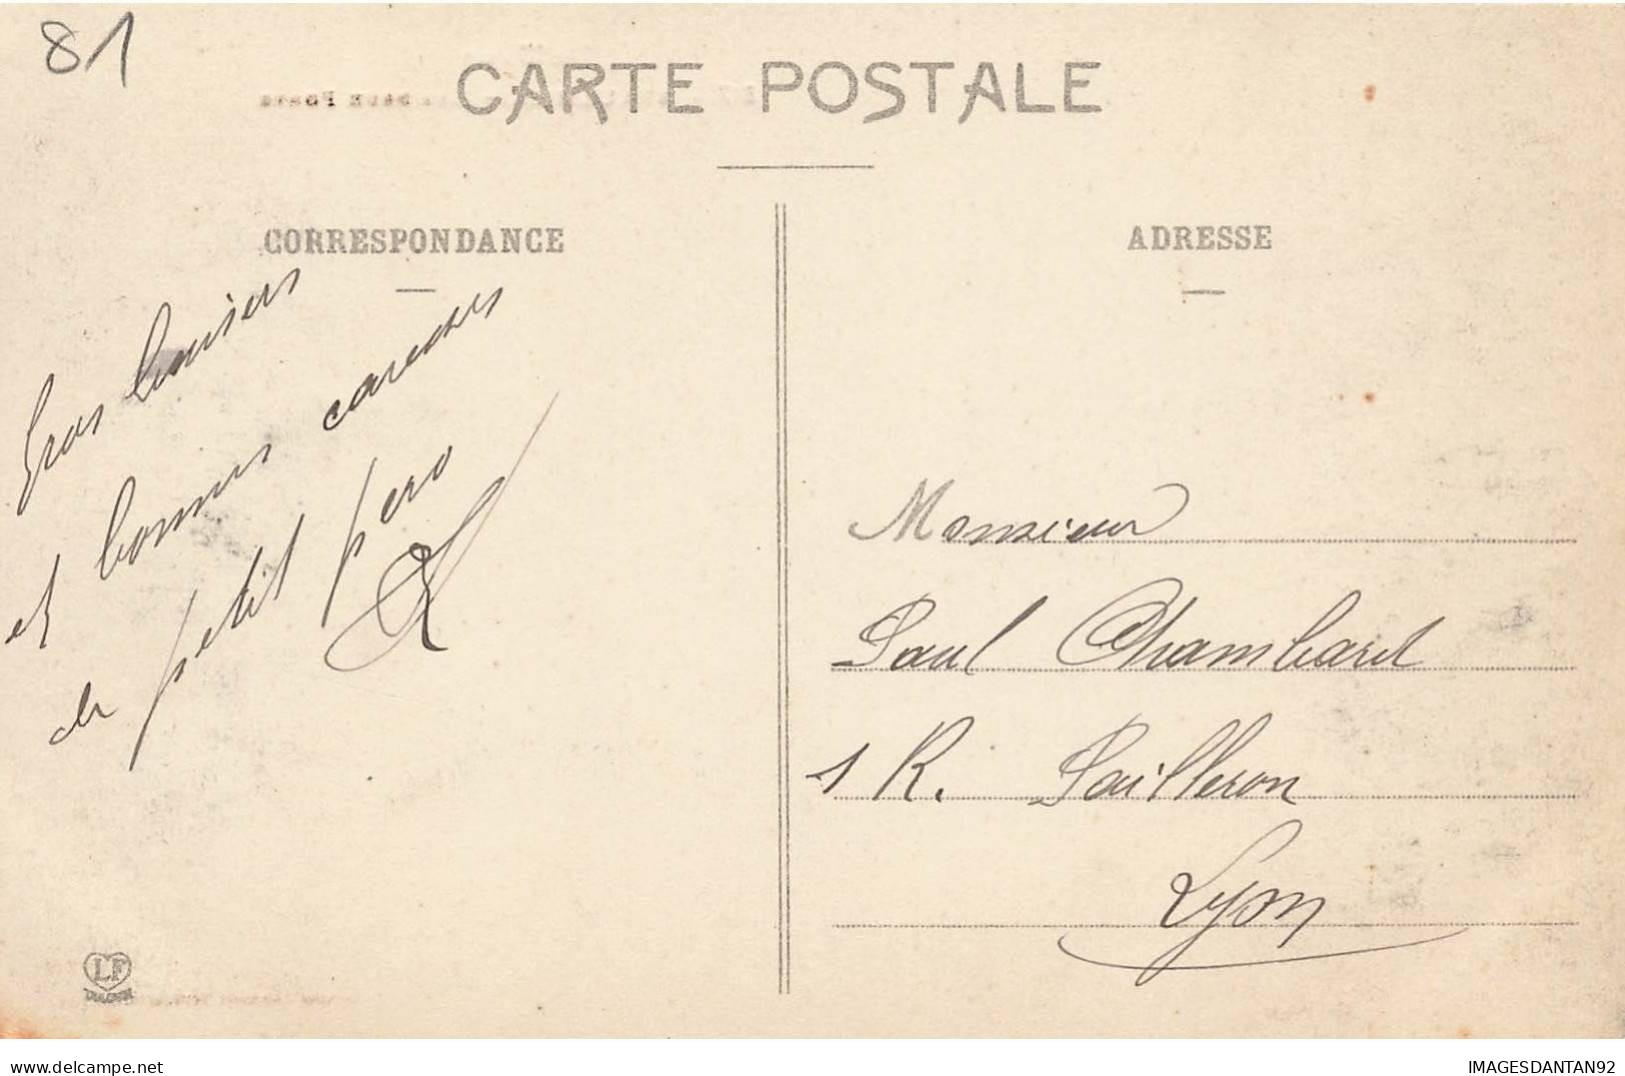 81
CARTE POSTALE
CORRESPONDANCE
ADRESSE
Gros baisers
et bonnes caresses
de petit pero
Monsieur
Paul Chambard
1 R. Pailleron
Lyon
LF
TOULOUSE
delcampe.net
IMAGESDANTAN92